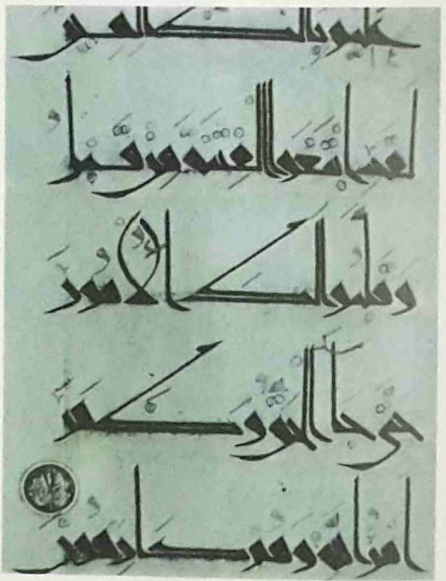 عليم بالظلمين
لقد ابتغوا الفتنة من قبل
وقلبوا لك الأمور
حتى جا الحق وظهر
امر الله وهم كرهون